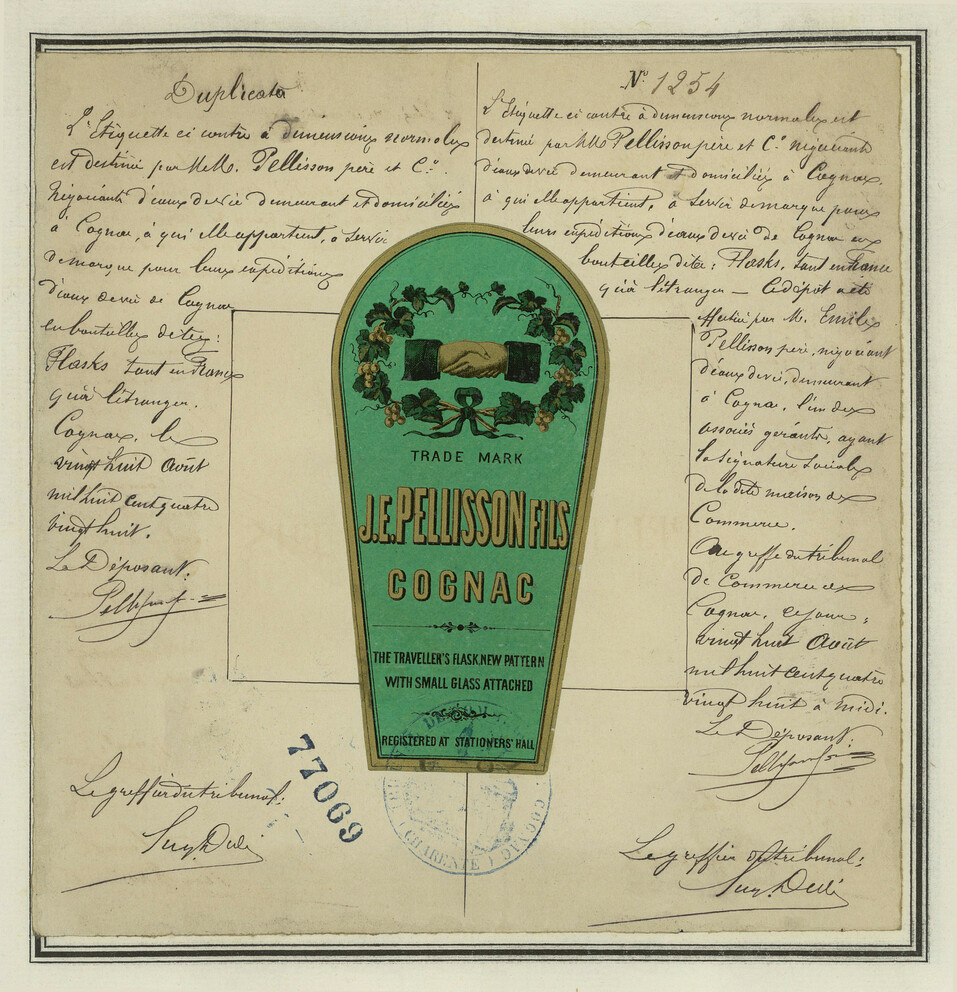 Duplicata
L'Etiquette ci contre à dimensions normales
est destiné par MM. Pellisson père et Cⁱᵉ.
Négociants d'eaux de vie demeurant et domiciliés
à Cognac, à qui elle appartient, à servir
de marque pour leurs expéditions
d'eaux de vie de Cognac
en bouteilles dites:
Flasks tant en France
qu'à l'étranger.
Cognac, le
vingt huit Août
mil huit cent quatre
vingt huit.
Le Déposant:
Le greffier du tribunal:
Nº 1254
L'Etiquette ci contre à dimensions normales est
destiné par MM Pellisson père et Cⁱᵉ négociants
d'eaux de vie demeurant et domiciliés à Cognac,
à qui elle appartient, à servir de marque pour
leurs expéditions d'eaux de vie de Cognac en
bouteilles dites: Flasks, tant en France
qu'à l'étranger — Ce dépôt a été
effectué par M. Emile
Pellisson père, négociant
d'eaux de vie, demeurant
à Cognac, l'un des
associés gérants, ayant
la signature sociale
de la dite maison de
Commerce.
Au greffe du tribunal
de Commerce de
Cognac, ce jour,
vingt huit Août
mil huit cent quatre
vingt huit à midi.
Le Déposant:
Le greffier du tribunal:
TRADE MARK
J.E. PELLISSON FILS
COGNAC
THE TRAVELLER'S FLASK, NEW PATTERN
WITH SMALL GLASS ATTACHED
REGISTERED AT STATIONERS' HALL
77069
COGNAC (CHARENTE)